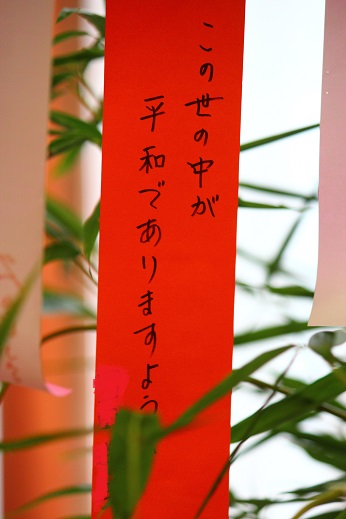 この世の中が
平和でありますよう